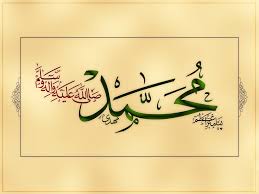 مُحَمَّد
صَلَّى اللهُ عَلَيْهِ وَآلِهِ وَسَلَّم